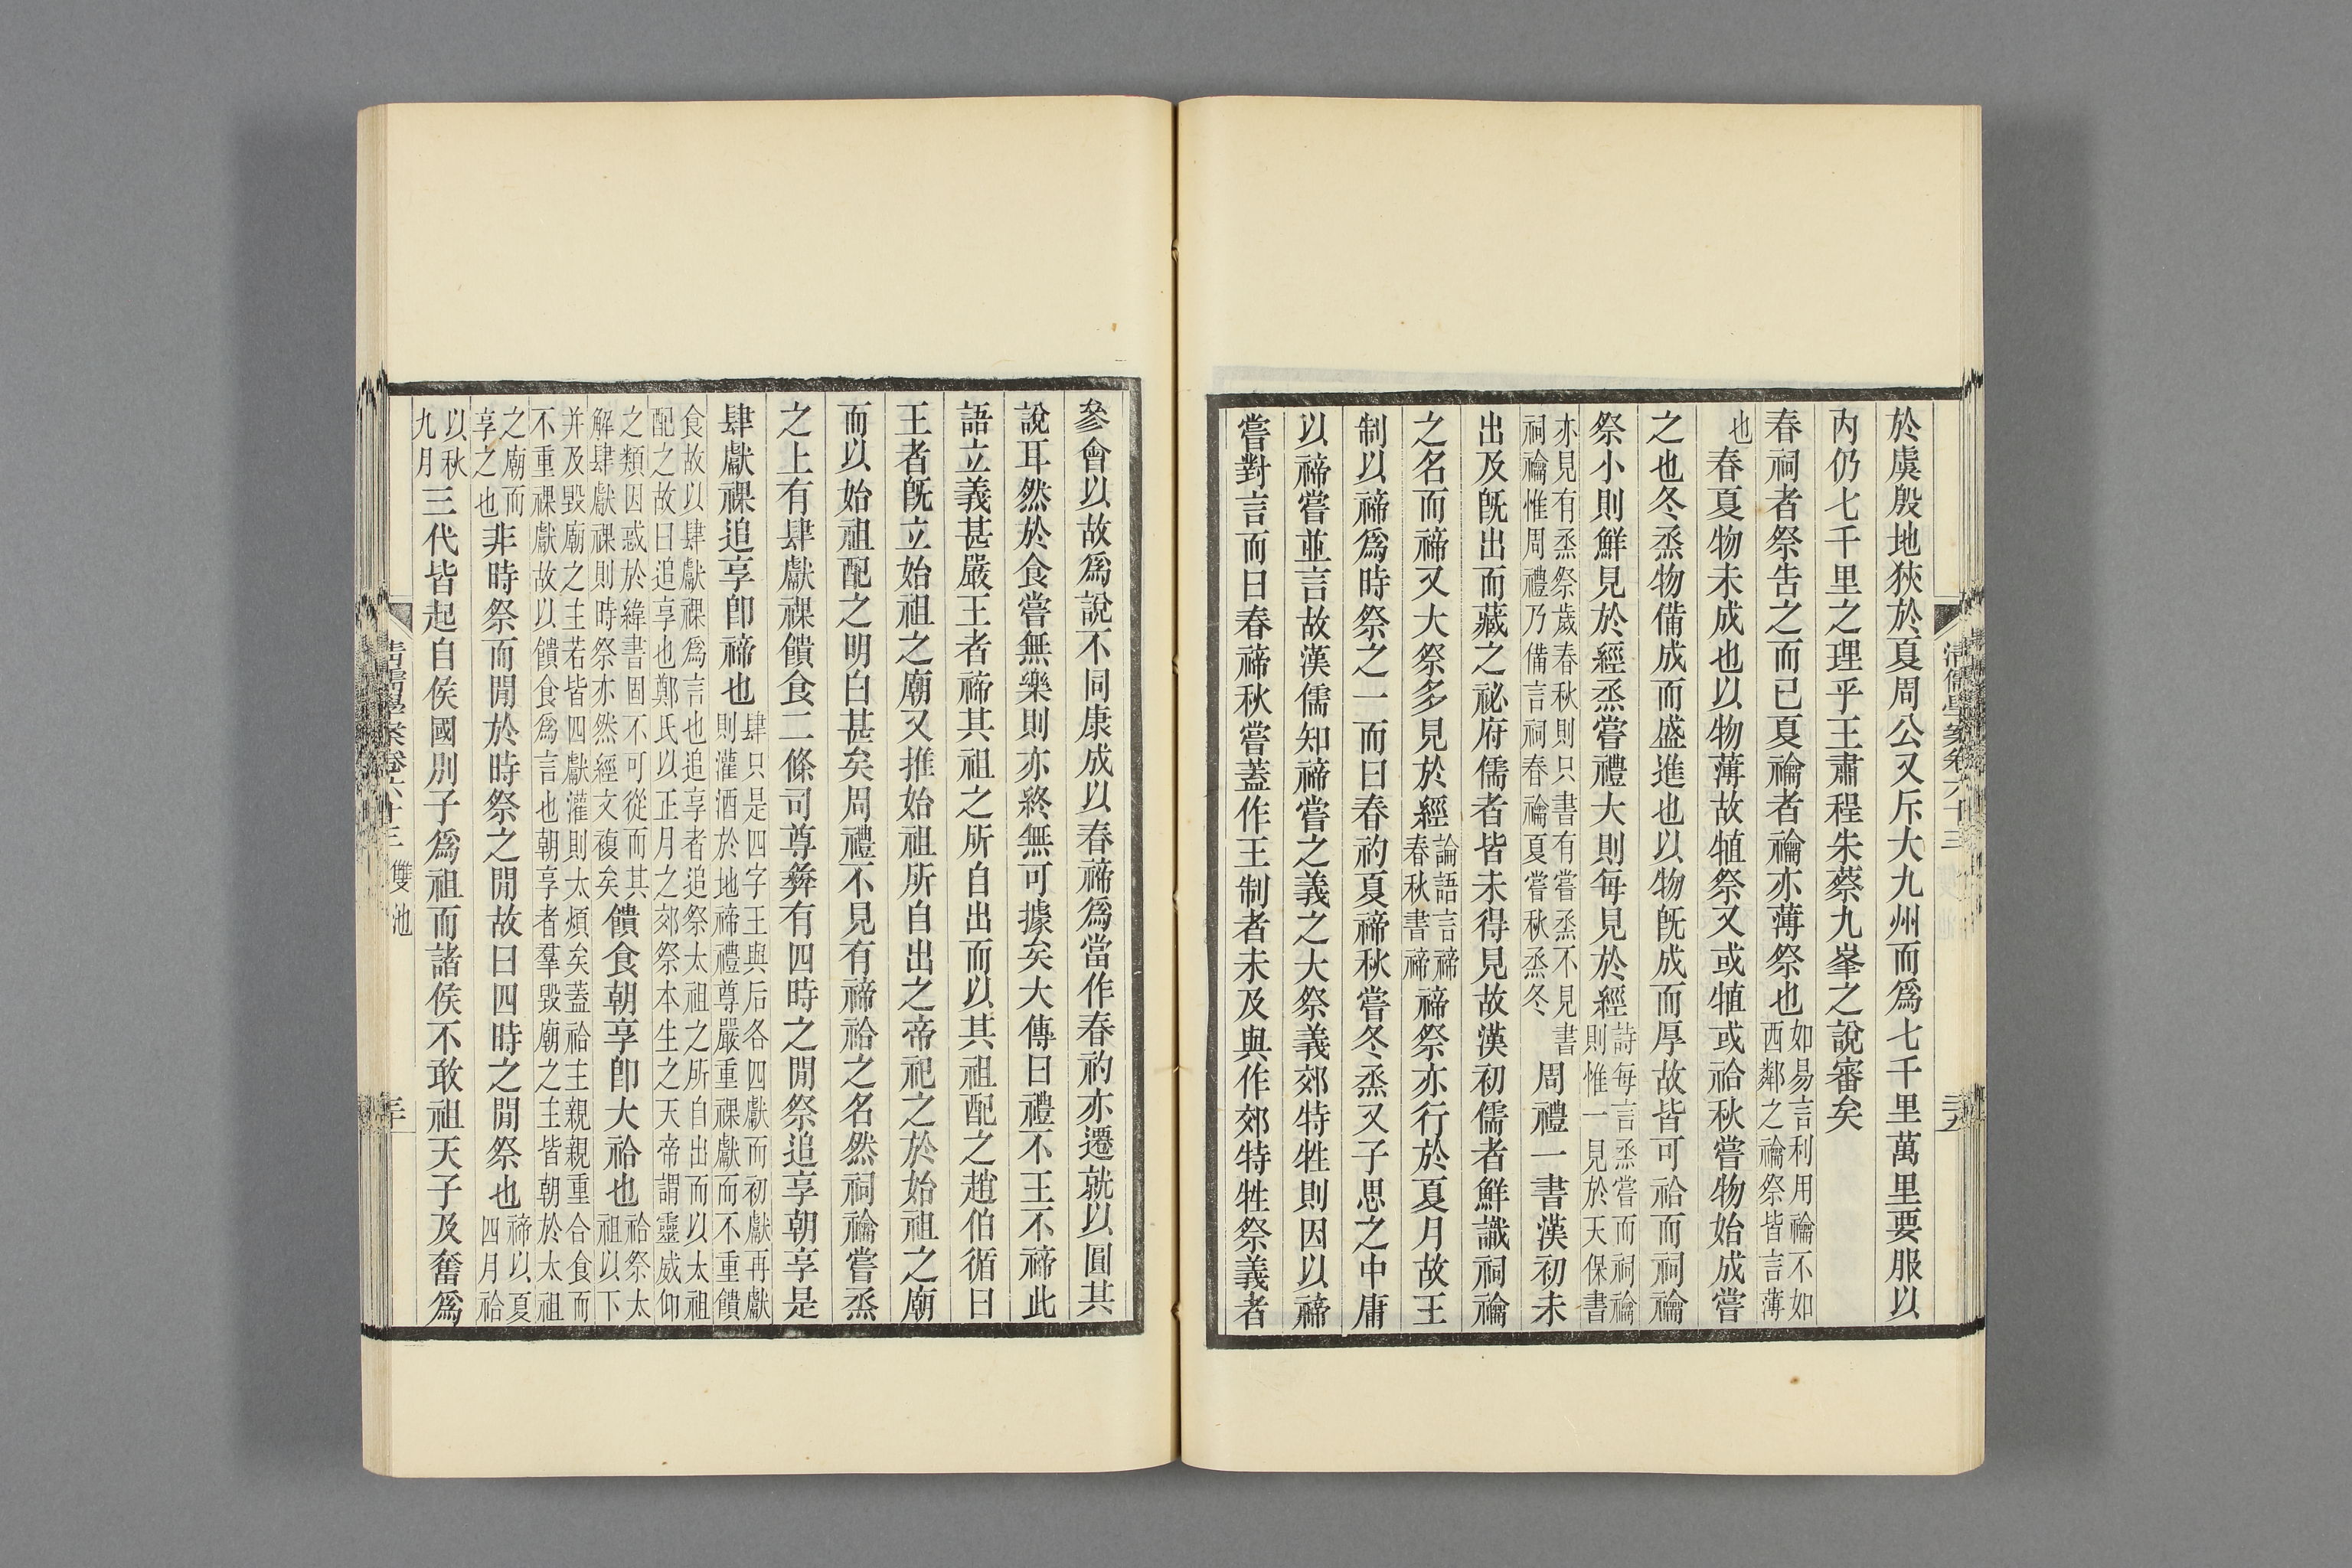 清儒學案卷六十三
於虞殷地狹於夏周公又斥大九州而爲七千里萬里要服以
內仍七千里之理乎王肅程朱蔡九峯之說審矣
春祠者祭告之而已夏禴者禴亦薄祭也如易言利用禴不如西鄰之禴祭皆言薄
也春夏物未成也以物薄故犆祭又或犆或祫秋嘗物始成嘗
之也冬烝物備成而盛進也以物旣成而厚故皆可祫而祠禴
祭小則鮮見於經烝嘗禮大則每見於經詩每言烝嘗而祠禴則惟一見於天保書
亦見有烝祭歲春秋則只書有嘗烝不見書祠禴惟周禮乃備言祠春禴夏嘗秋烝冬周禮一書漢初未
出及旣出而藏之祕府儒者皆未得見故漢初儒者鮮識祠禴
之名而禘又大祭多見於經論語言禘春秋書禘禘祭亦行於夏月故王
制以禘爲時祭之一而曰春礿夏禘秋嘗冬烝又子思之中庸
以禘嘗並言故漢儒知禘嘗之義之大祭義郊特牲則因以禘
嘗對言而曰春禘秋嘗蓋作王制者未及與作郊特牲祭義者
參會以故爲說不同康成以春禘爲當作春礿亦遷就以圓其
說耳然於食嘗無樂則亦終無可據矣大傳曰禮不王不禘此
語立義甚嚴王者禘其祖之所自出而以其祖配之趙伯循曰
王者旣立始祖之廟又推始祖所自出之帝祀之於始祖之廟
而以始祖配之明白甚矣周禮不見有禘祫之名然祠禴嘗烝
之上有肆獻祼饋食二條司尊彝有四時之閒祭追享朝享是
肆獻祼追享卽禘也肆只是四字王與后各四獻而初獻再獻則灌酒於地禘禮尊嚴重祼獻而不重饋
食故以肆獻祼爲言也追享者追祭太祖之所自出而以太祖配之故曰追享也鄭氏以正月之郊祭本生之天帝謂靈威仰
之類因惑於緯書固不可從而其解肆獻祼則時祭亦然經文複矣饋食朝享卽大祫也祫祭太祖以下
并及毀廟之主若皆四獻灌則太煩矣蓋祫主親親重合食而不重祼獻故以饋食爲言也朝享者羣毀廟之主皆朝於太祖
之廟而享之也非時祭而閒於時祭之閒故曰四時之閒祭也禘以夏四月祫
以秋九月三代皆起自侯國別子爲祖而諸侯不敢祖天子及奮爲
清儒學案卷六十三 雙池 三十